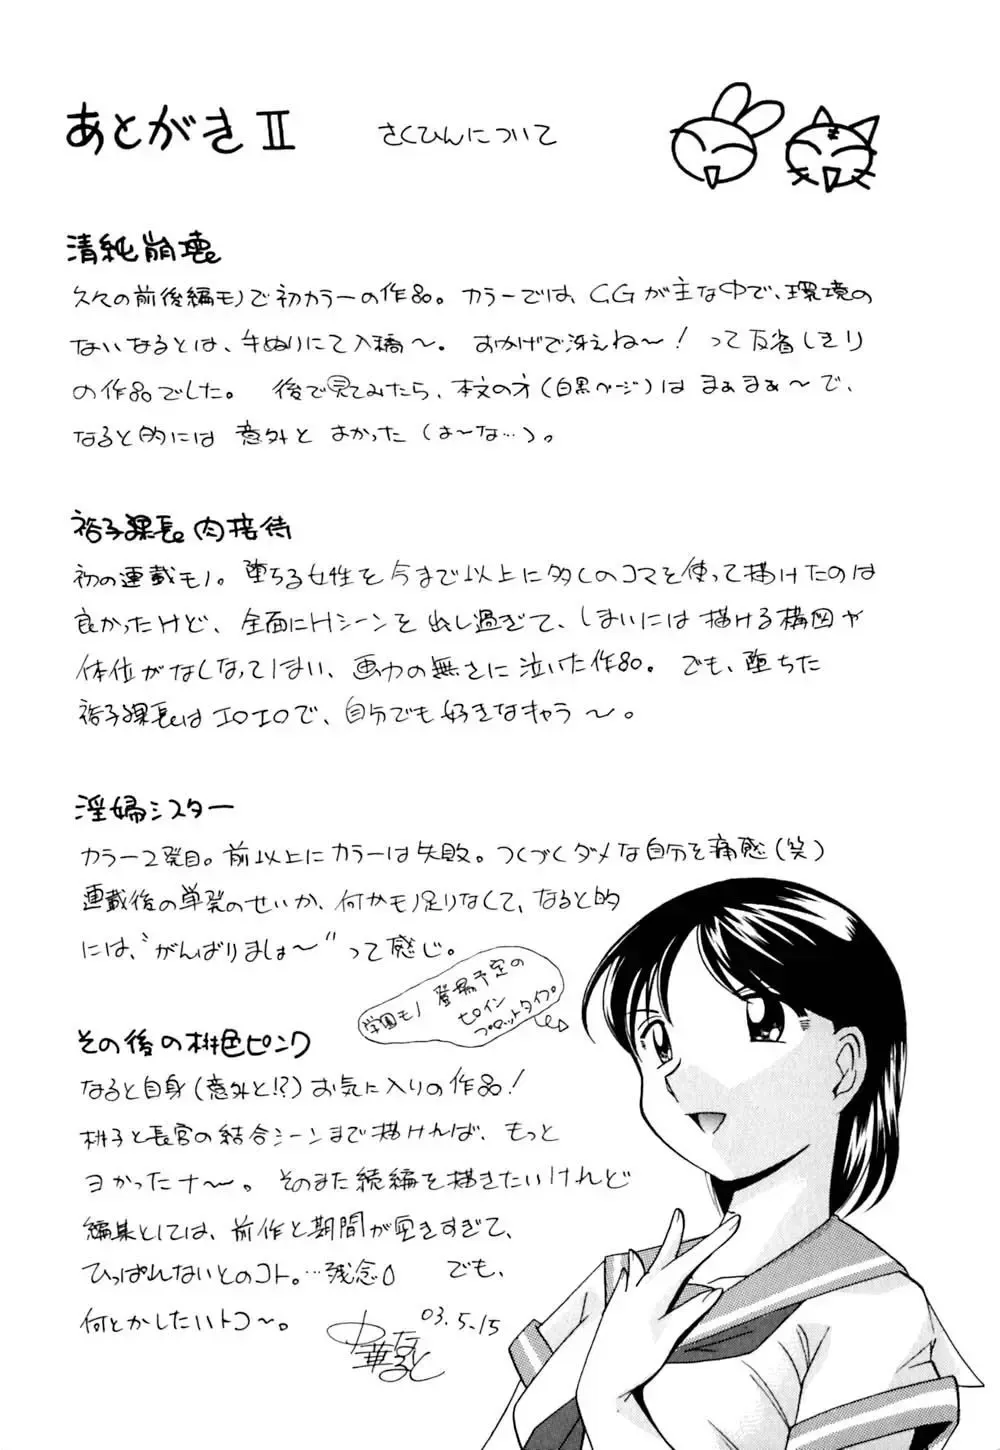 あとがきⅡ
さくひんについて
清純崩壊。
久々の前後編モノで初カラーの作品。カラーでは、CGが主な中で、環境の
ないなるとは、手ぬりにて入稿〜。おかげで冴えね〜！って反省しきり
の作品でした。後で見てみたら、本文の方（白黒ページ）は まぁまぁ〜で、
なると的には 意外と よかった（は〜な…）。
裕子課長。肉接待
初の連載モノ。堕ちる女性を今まで以上に多くのコマを使って描けたのは
良かったけど、全面にHシーンを出し過ぎて、しまいには描ける構図や
体位がなくなってしまい、画力の無さに泣いた作品。でも、堕ちた
裕子課長はエロエロで、自分でも好きなキャラ〜。
淫婦シスター
カラー2発目。前以上にカラーは失敗。つくづくダメな自分を痛感（笑）
連載後の単発のせいか、何かモノ足りなくて、なると的
には、“がんばりましょ〜”って感じ。
学園モノ 登場予定の
ヒロイン
プロットタイプ。
その後の桃色ピンク
なると自身（意外と!?）お気に入りの作品！
桃子と長官の結合シーンまで描ければ、もっと
ヨかったナ〜。そのまた続編を描きたいけれど
編集としては、前作と期間が空きすぎて、
ひっぱれないとのコト。…残念 でも、
何とかしたいトコ〜。
03.5.15
中華なると